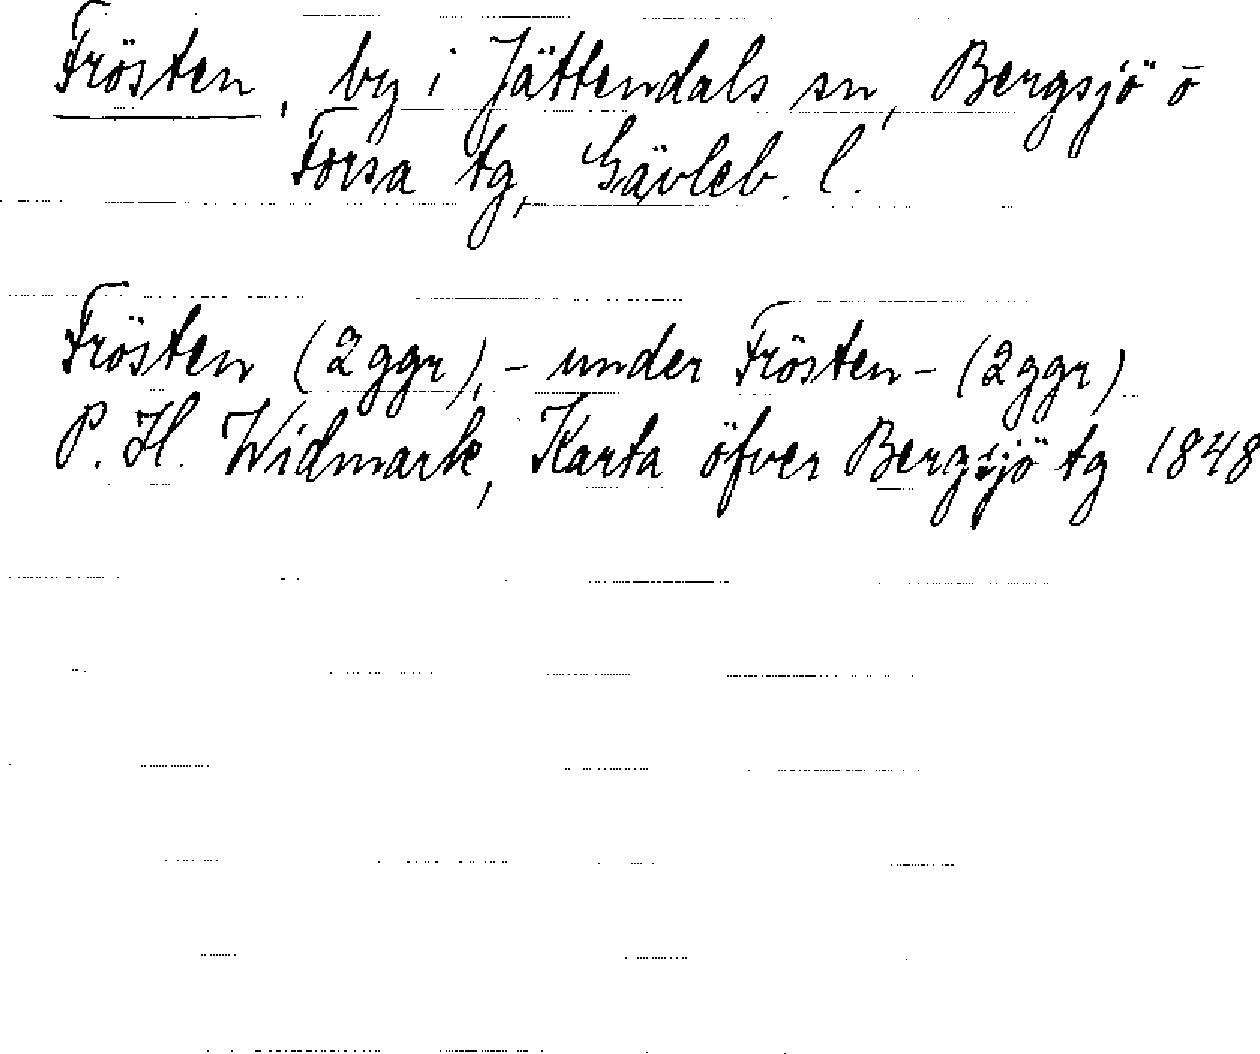 Frösten, by i Jättendals sn, Bergsjö o
Forsa tg, Gävleb. l.
Frösten (2 ggr), - under Frösten - (2 ggr)
P. H. Widmark, Karta öfver Bergsjö tg 1848